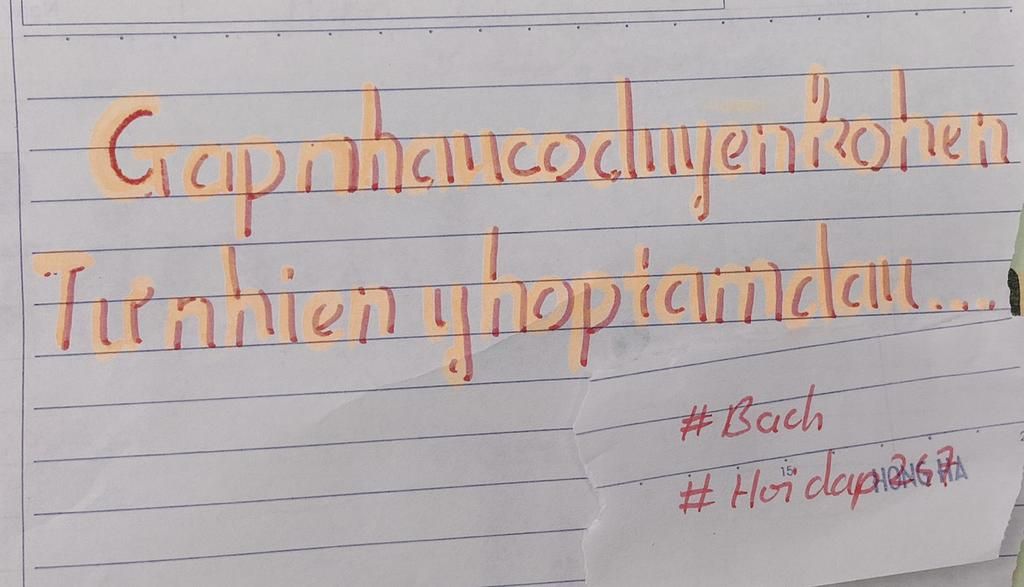 Gapnhaucoduyenkohen
Tưnhien yhoptamdau....
#Bach
#Hoidap247
15
HONG HA